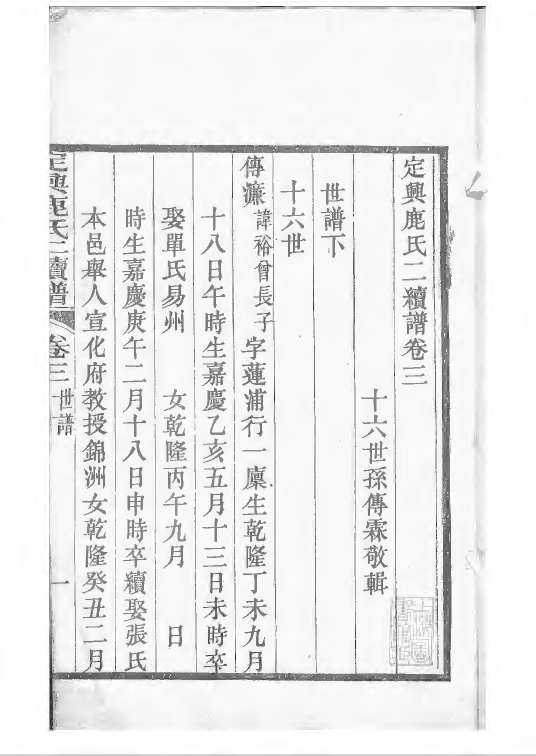 定興鹿氏二續譜卷三
十六世孫傳霖敬輯
世譜下
十六世
傳濂諱裕曾長子字蓮浦行一廩生乾隆丁未九月
十八日午時生嘉慶乙亥五月十三日未時卒
娶單氏易州 女乾隆丙午九月 日
時生嘉慶庚午二月十八日申時卒續娶張氏
本邑舉人宣化府教授錦洲女乾隆癸丑二月
定興鹿氏二續譜 卷三 世譜 一